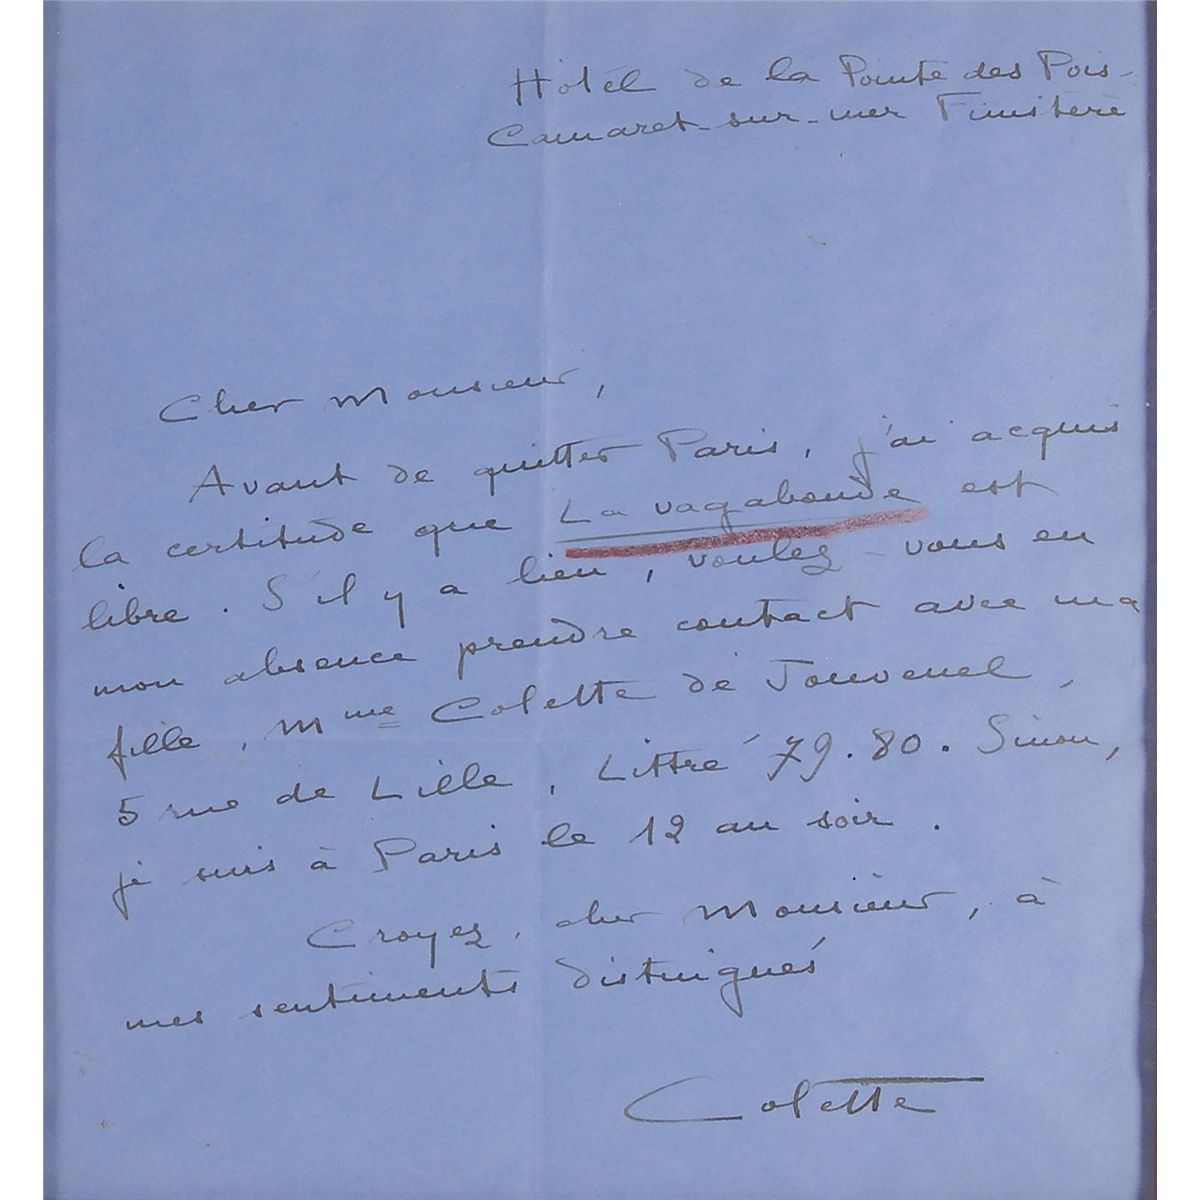 Hôtel de la Pointe des Pois-
Camaret-sur-mer Finistère
Cher Monsieur,
Avant de quitter Paris, j'ai acquis
la certitude que La vagabonde est
libre. S'il y a lieu, voulez-vous en
mon absence prendre contact avec ma
fille, Mme Colette de Jouvenel,
5 rue de Lille, Littré 79.80. Sinon,
je suis à Paris le 12 au soir.
Croyez, cher Monsieur, à
mes sentiments distingués
Colette